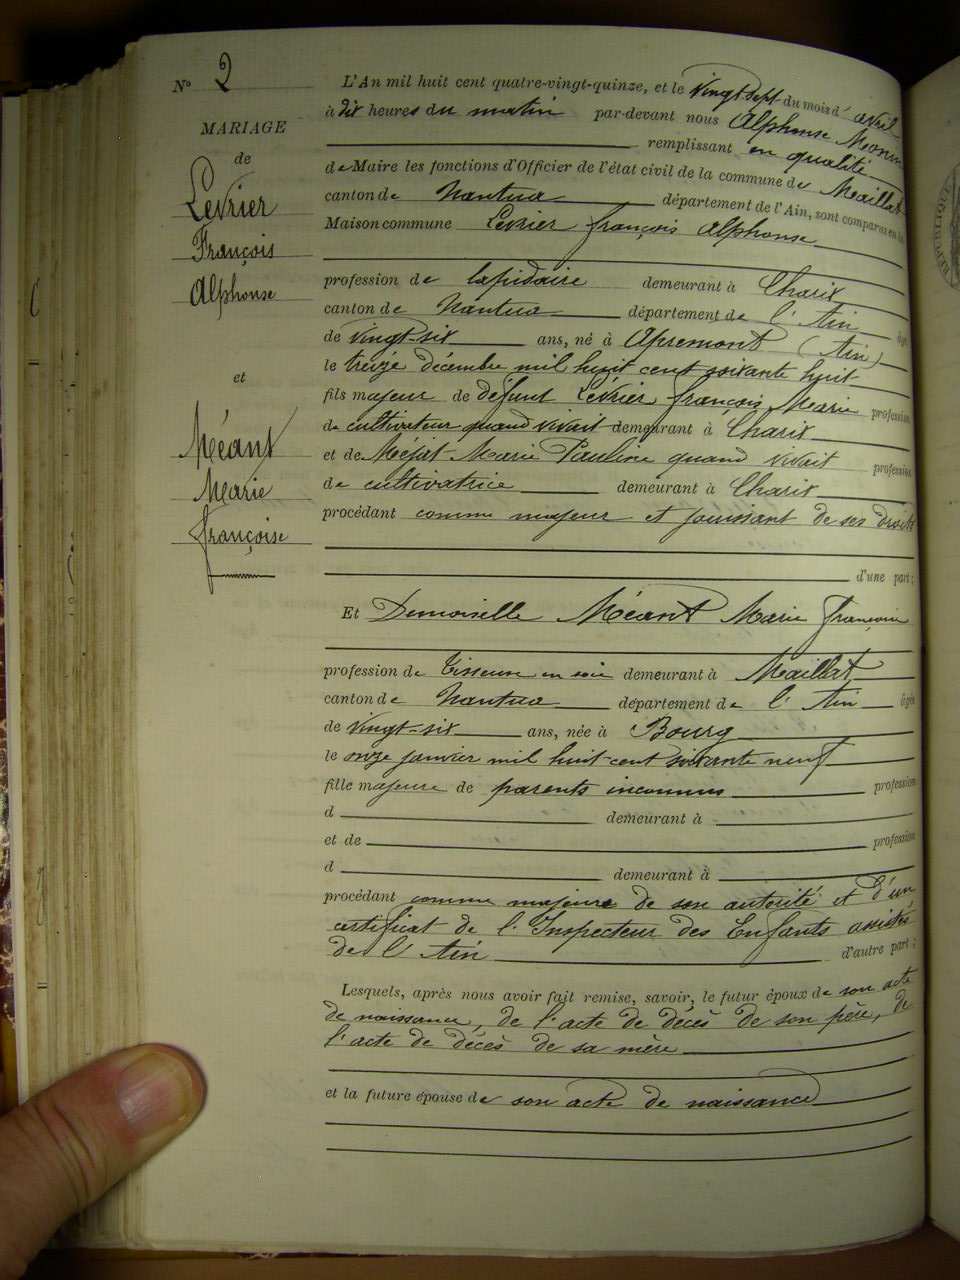 N° 2
MARIAGE
de
Levrier
François
Alphonse
et
Méant
Marie
françoise
L'An mil huit cent quatre-vingt-quinze, et le vingt sept du mois d'avril
à dix heures du matin par-devant nous Alphonse
remplissant en qualité
de Maire les fonctions d'Officier de l'état civil de la commune de Maillat
canton de Nantua département de l'Ain, sont comparus en la
Maison commune Levrier françois Alphonse
profession de lapidaire demeurant à Charix
canton de Nantua département de l'Ain âgé
de vingt-six ans, né à Apremont (Ain)
le treize décembre mil huit cent soixante huit
fils majeur de défunt Levrier françois Marie profession
de cultivateur quand vivait demeurant à Charix
et de Méjat Marie Pauline quand vivait profession
de cultivatrice demeurant à Charix
procédant comme majeur et jouissant de ses droits
d'une part;
Et Demoiselle Méant Marie françoise
profession de Tisseuse en soie demeurant à Maillat
canton de Nantua département de l'Ain âgée
de vingt-six ans, née à Bourg
le onze janvier mil huit-cent soixante neuf
fille majeure de parents inconnus profession
d demeurant à
et de profession
d demeurant à
procédant comme majeure de son autorité et d'un
certificat de l'Inspecteur des Enfants assistés
de l'Ain d'autre part;
Lesquels, après nous avoir fait remise, savoir, le futur époux de son acte
de naissance, de l'acte de décès de son père, de
l'acte de décès de sa mère
et la future épouse de son acte de naissance